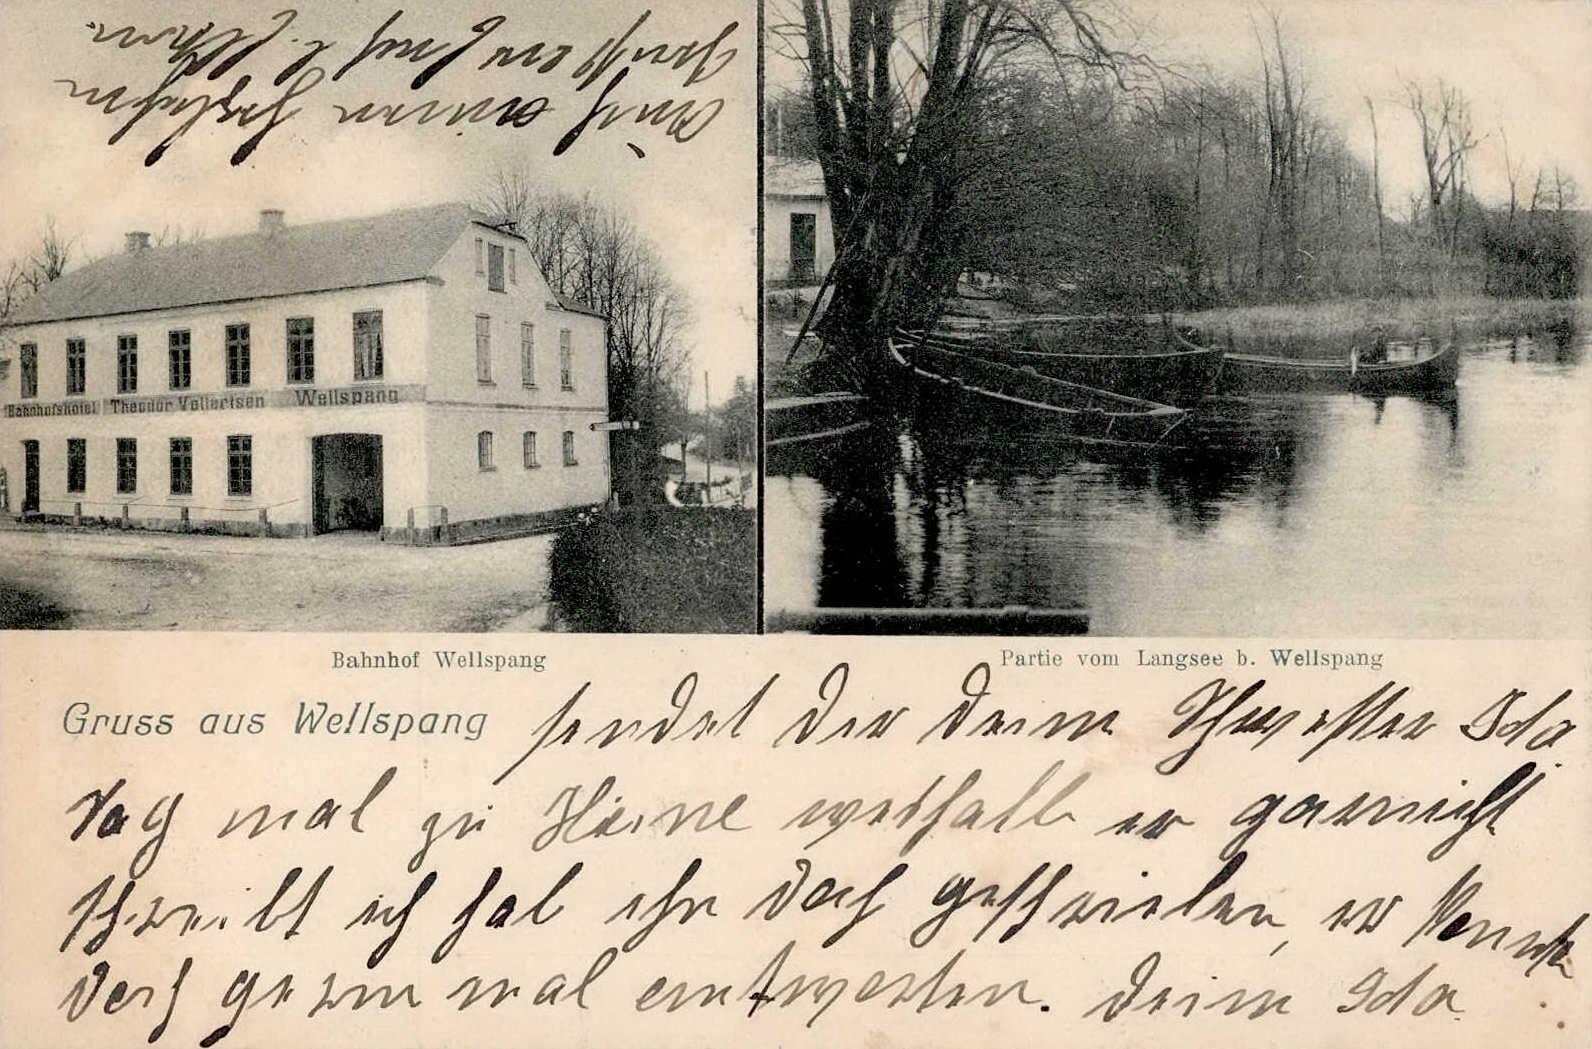 Bahnhofshotel Theodor Vollertsen Wellspang
Bahnhof Wellspang
Partie vom Langsee b. Wellspang
Gruss aus Wellspang
sendet dir deine Schwester Ida
Sag mal zu Heine weshalb er garnicht
schreibt ich hab ihn doch geschrieben, er konnte
doch gern mal antworten. Deine Ida
Auch einen herzlichen
Gruß an